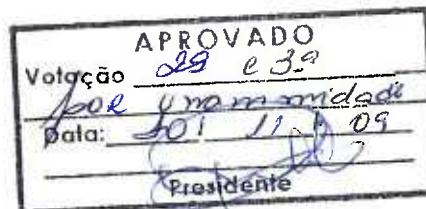 APROVADO
Votação 2ª e 3ª
por unanimidade
Data: 30/ 11 / 09
Presidente